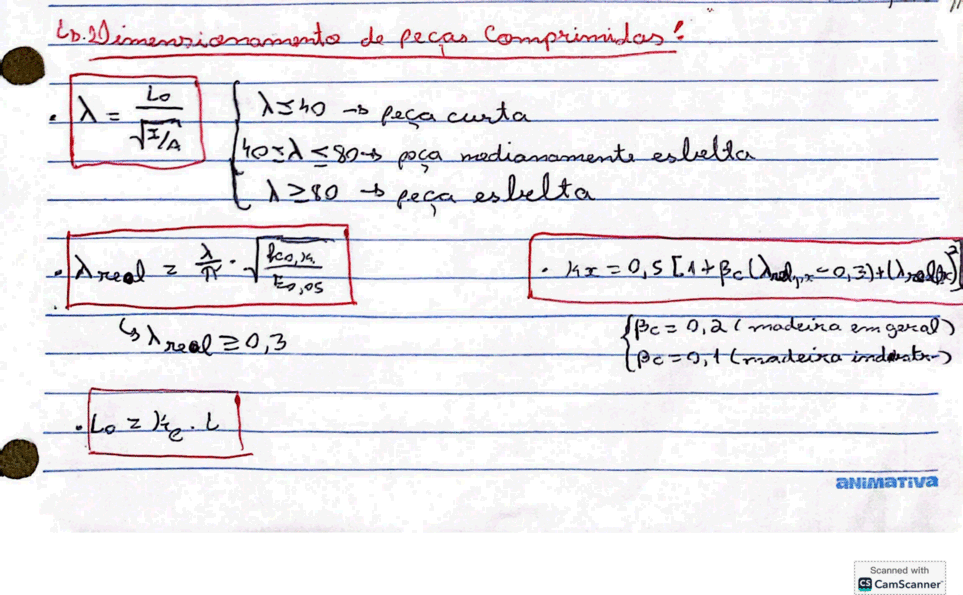 ↳ Dimensionamento de peças comprimidas!
• λ = L₀ / √(I/A)
λ ≤ 40 → peça curta
40 ≤ λ ≤ 80 → peça medianamente esbelta
λ ≥ 80 → peça esbelta
• λreal = λ/π · √(fc0,k / E0,05)
↳ λreal ≥ 0,3
• kx = 0,5 [1 + βc (λrel,x − 0,3) + (λrel,x)²]
βc = 0,2 (madeira em geral)
βc = 0,1 (madeira industr-)
• L₀ = ke . L
ANIMATIVA
Scanned with
CS CamScanner